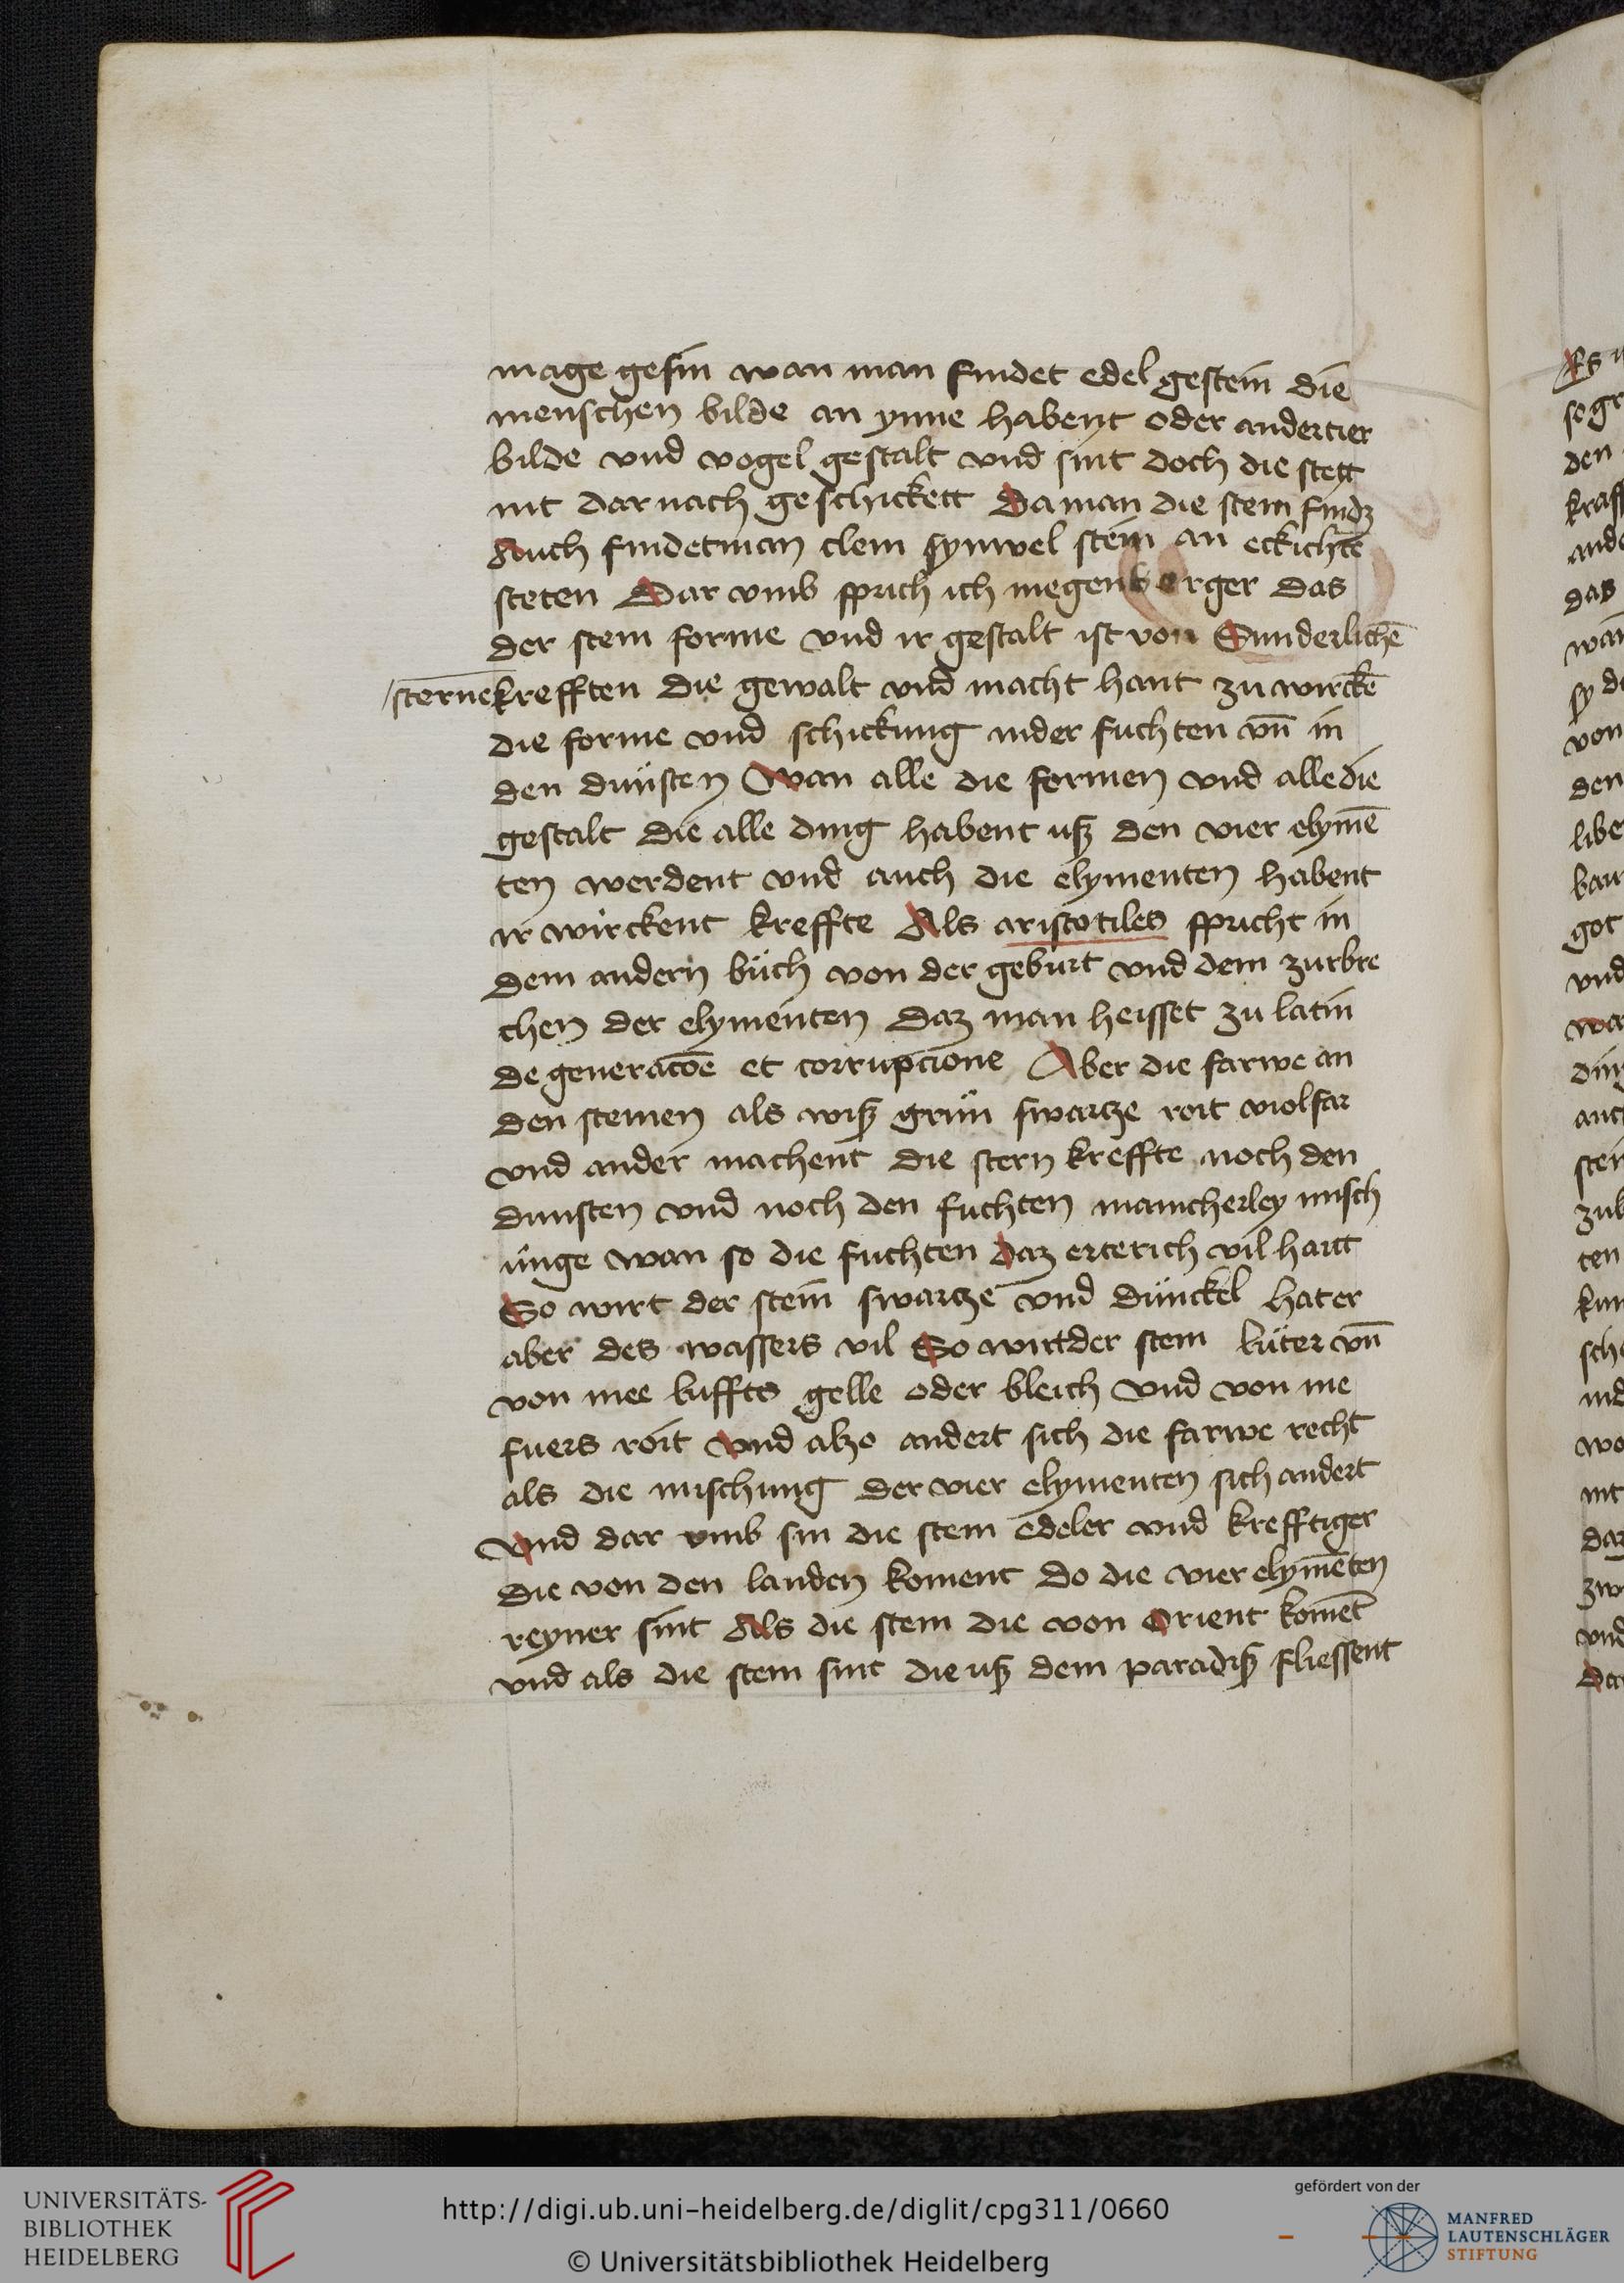 mage gesin wan man findet edel gestein die
menschen bilde an ynne habent oder andertier
bilde vnd vogel gestalt vnd sint doch die stett
nit dar nach geschickett Da man die stein findz
Auch findetman clein synwel stein an eckichte
steten Dar vmb sprich ich megenberger das
der stein forme vnd ir gestalt ist von Sunderlichē
sternekrefften die gewalt vnd macht hant zu wirckē
die forme vnd schickung inder fuchten vn̄ in
den dünsten Wan alle die formen vnd alle die
gestalt die alle ding habent uß den vier elymē
ten werdent vnd auch die elymenten habent
ir wirckent kreffte Als aristotiles spricht in
dem andern bůch von der geburt vnd dem zurbre
chen der elymenten Daz man heisset zu latin
de generacōe et corrupcione Aber die farwe an
den steinen als wiß grün swartze roit violfar
vnd ander machent die stern kreffte noch den
dunsten vnd noch den fuchten mancherley misch
unge wan so die fuchten daz erterich vil hant
So wirt der stein swartze vnd dünckel hat er
aber des wassers vil So wirtder stein lüter vn̄
von mee luffts gelle oder bleich vnd von me
fuers roit vnd alzo andert sich die farwe recht
als die mischung der vier elymenten sich andert
vnd dar vmb sin die stein edeler vnd krefftiger
die von den landen koment do die vier elymēten
reyner sint Als die stein die von Orient komēt
vnd als die stein sint die uß dem paradiß fliessent
UNIVERSITÄTS-
BIBLIOTHEK
HEIDELBERG
http://digi.ub.uni-heidelberg.de/diglit/cpg311/0660
© Universitätsbibliothek Heidelberg
gefördert von der
MANFRED
LAUTENSCHLÄGER
STIFTUNG